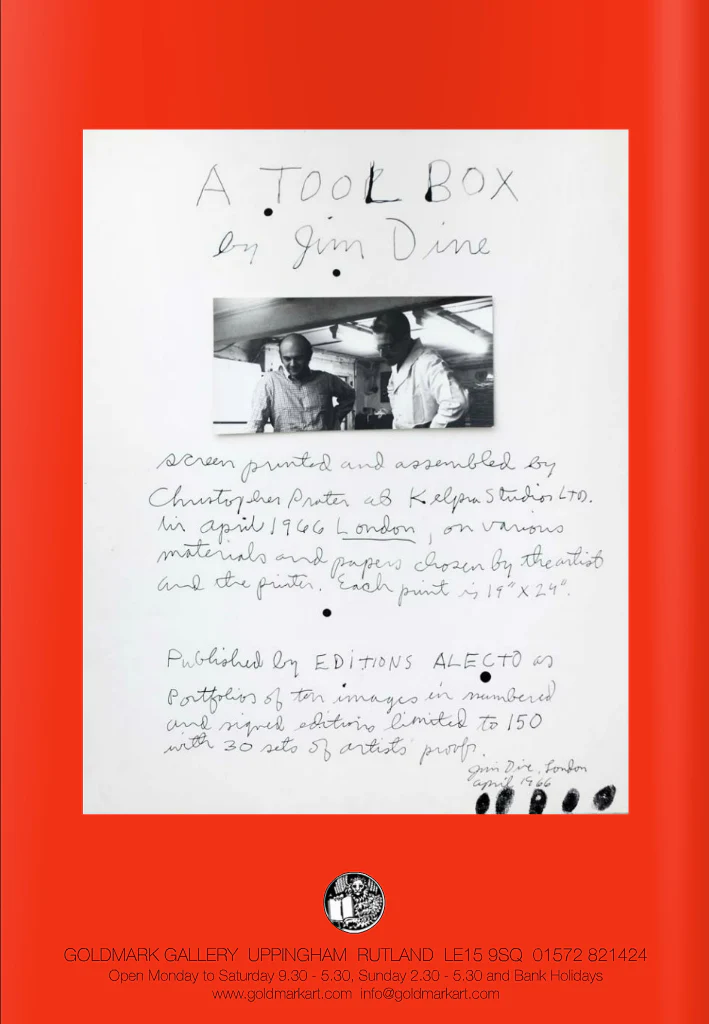 A TOOL BOX
by Jim Dine
screen printed and assembled by
Christopher Prater at Kelpra Studios LTD.
in april 1966 London, on various
materials and papers chosen by the artist
and the printer. Each print is 19" X 24".
Published by EDITIONS ALECTO as
Portfolios of ten images in numbered
and signed editions limited to 150
with 30 sets of artists' proofs.
Jim Dine, London
april 1966
GOLDMARK GALLERY UPPINGHAM RUTLAND LE15 9SQ 01572 821424
Open Monday to Saturday 9.30 - 5.30, Sunday 2.30 - 5.30 and Bank Holidays
www.goldmarkart.com info@goldmarkart.com